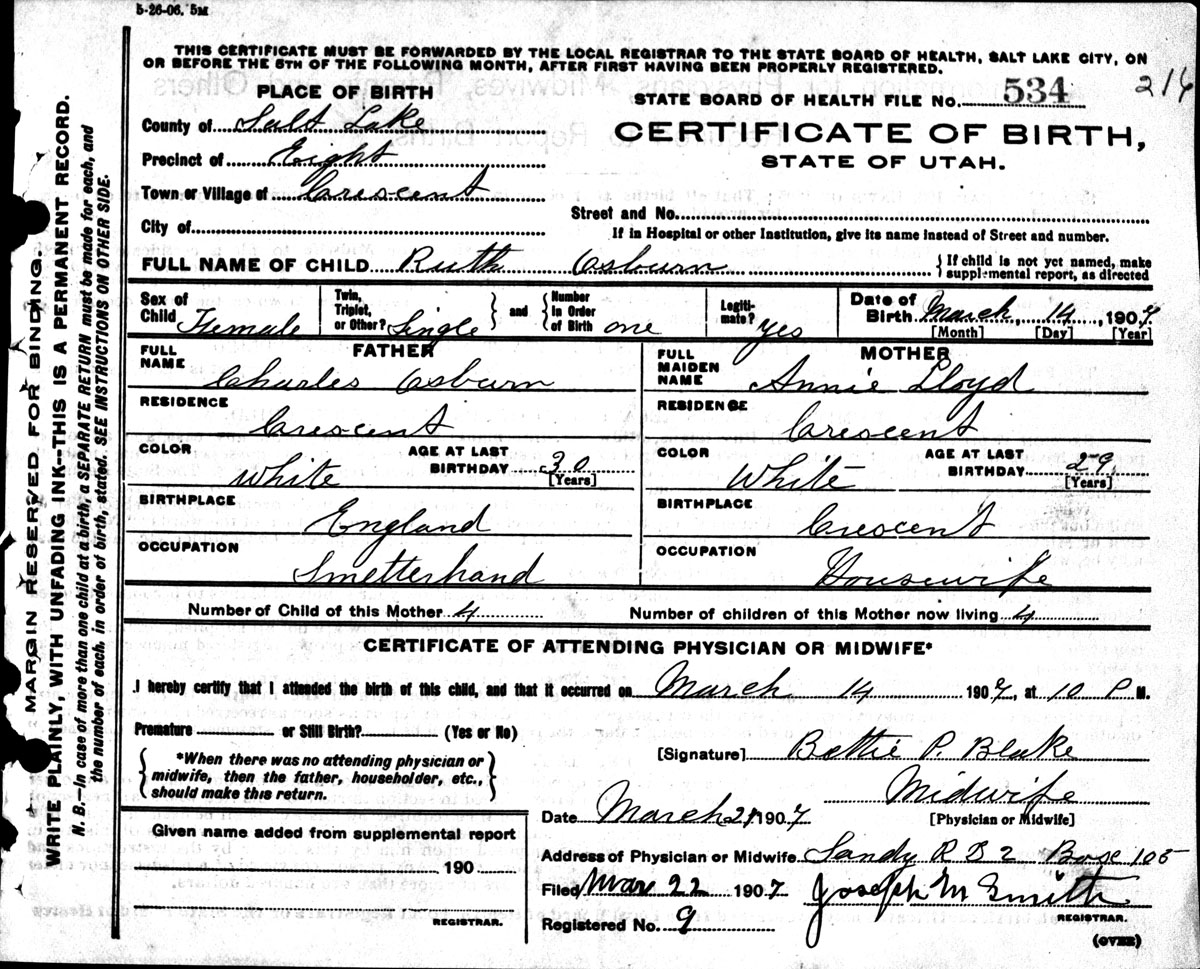 5-26-06. 5M
THIS CERTIFICATE MUST BE FORWARDED BY THE LOCAL REGISTRAR TO THE STATE BOARD OF HEALTH, SALT LAKE CITY, ON
OR BEFORE THE 5TH OF THE FOLLOWING MONTH, AFTER FIRST HAVING BEEN PROPERLY REGISTERED.
216
PLACE OF BIRTH
STATE BOARD OF HEALTH FILE NO. 534
County of Salt Lake
CERTIFICATE OF BIRTH,
Precinct of Eight
STATE OF UTAH.
Town or Village of Crescent
Street and No.
City of
If in Hospital or other Institution, give its name instead of Street and number.
FULL NAME OF CHILD Ruth Osburn { If child is not yet named, make supplemental report, as directed
Sex of Child Female
Twin, Triplet, or Other? Single } and { Number In Order of Birth one
Legitimate? yes
Date of Birth March 14, 1907
[Month] [Day] [Year]
FATHER
FULL NAME Charles Osburn
RESIDENCE Crescent
COLOR White AGE AT LAST BIRTHDAY 30 [Years]
BIRTHPLACE England
OCCUPATION Smelterhand
MOTHER
FULL MAIDEN NAME Annie Lloyd
RESIDENCE Crescent
COLOR White AGE AT LAST BIRTHDAY 29 [Years]
BIRTHPLACE Crescent
OCCUPATION Housewife
Number of Child of this Mother 4 Number of children of this Mother now living 4
CERTIFICATE OF ATTENDING PHYSICIAN OR MIDWIFE*
I hereby certify that I attended the birth of this child, and that it occurred on March 14 1907, at 10 P M.
Premature or Still Birth? (Yes or No)
{ *When there was no attending physician or
midwife, then the father, householder, etc.,
should make this return. }
[Signature] Bettie P. Blake
Midwife
[Physician or Midwife]
Date March 21 1907
Given name added from supplemental report
190
REGISTRAR.
Address of Physician or Midwife Sandy R D 2 Box 105
Filed Mar 22 1907 Joseph M Smith
REGISTRAR.
Registered No. 9
(OVER)
MARGIN RESERVED FOR BINDING.
WRITE PLAINLY, WITH UNFADING INK--THIS IS A PERMANENT RECORD.
N. B.—In case of more than one child at a birth, a SEPARATE RETURN must be made for each, and
the number of each, in order of birth, stated. SEE INSTRUCTIONS ON OTHER SIDE.